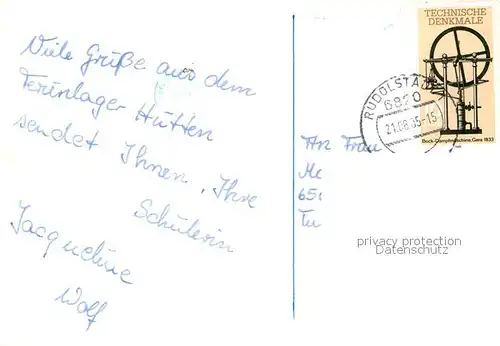 Viele Grüße aus dem
Ferienlager Hütten
sendet Ihnen, Ihre
Schülerin
Jacqueline
Wolf
TECHNISCHE
DENKMALE
Bock-Dampfmaschine, Gera 1833
RUDOLSTADT
6820
21.08.85-15
An Frau
Me
65
Tu
privacy protection
Datenschutz